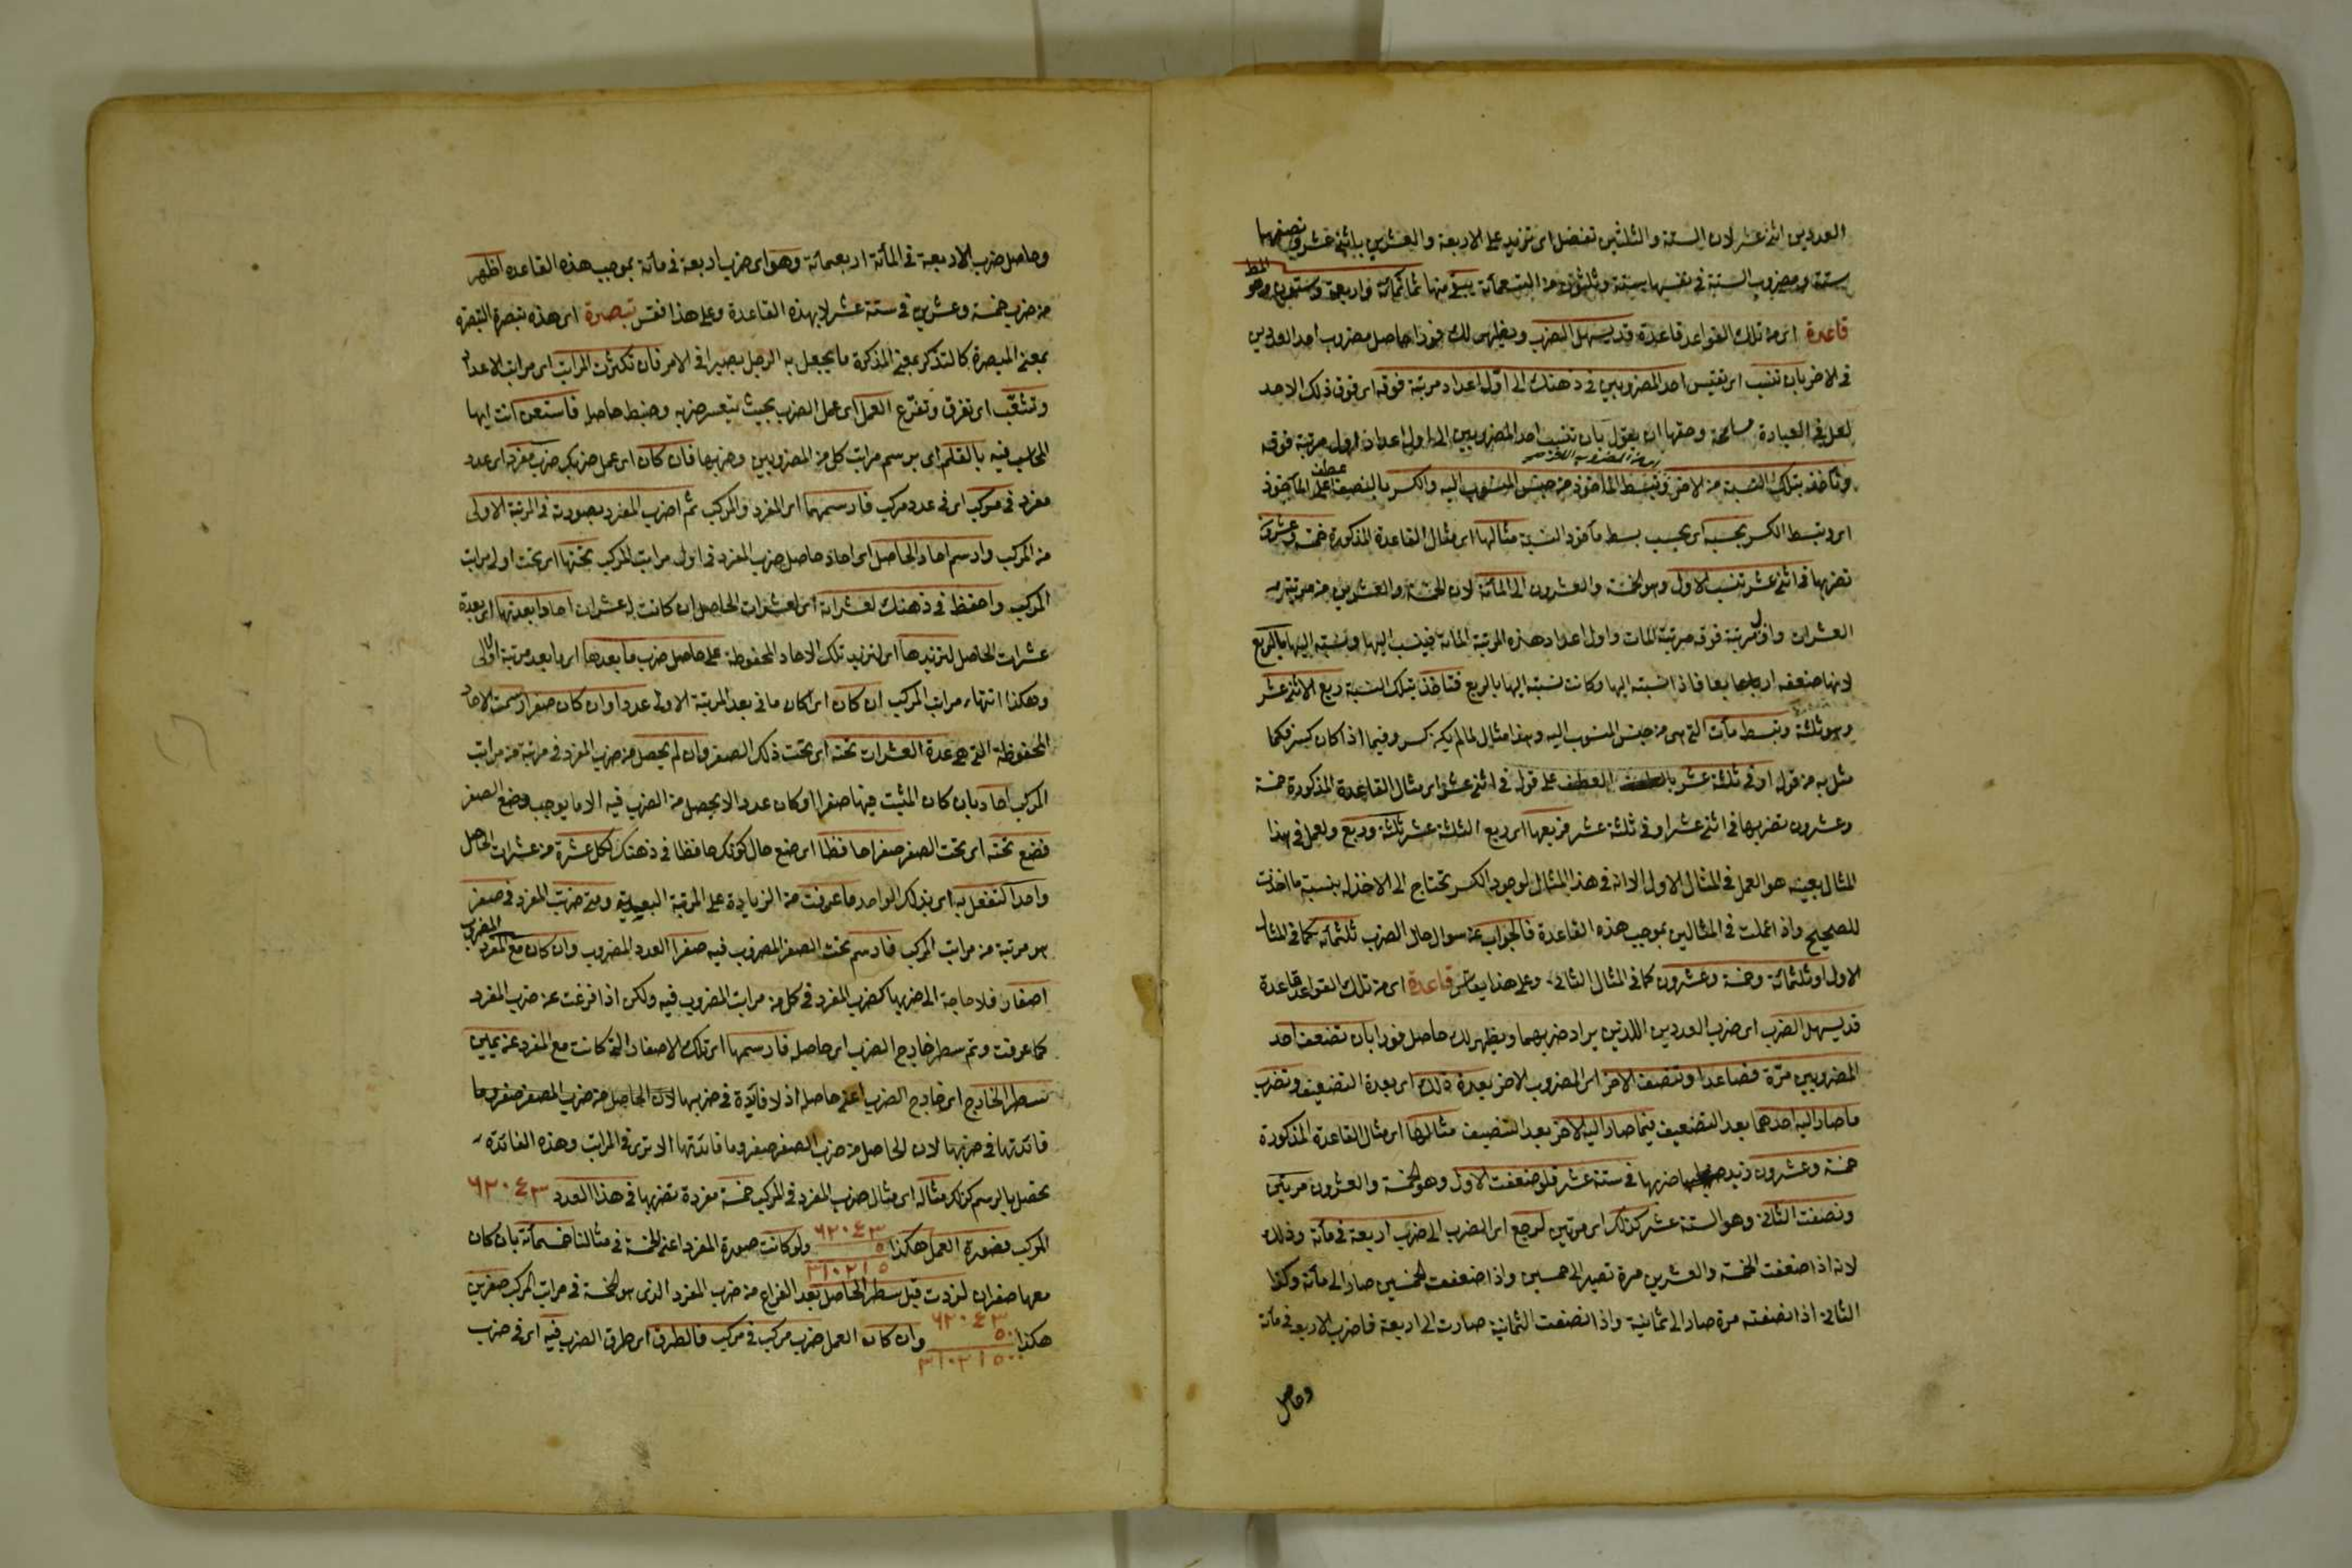 العددين اثنى عشر لان الستة والثلثين تفضل اى تزيد على الاربعة والعشرين باثنى عشر ونصفها
ستة ومضروب الستة فى نفسها ستة وثلثون من التسعمائة يبقى منها ثمانمائة واربعة وستون وهو المط
قاعدة اى من تلك القواعد قاعدة قد يسهل الضرب ويظهر لك فورا حاصل مضروب احد العددين
فى الاخر بان تنسب اى تقيس احد المضروبين فى ذهنك الى اول اعداد مرتبة فوقه اى فوق ذلك الاحد
لعل فى العبادة مسامحة وحقها ان يقول بان تنسب احد المضروبين الى اول اعداد اول مرتبة فوقه
وتأخذ بتلك النسبة من الاخر وتبسط المأخوذ من جنس المنسوب اليه والكسر بالنصب عطف على المأخوذ
اى وتبسط الكسر بحسبه اى بحسب بسط مأخوذ النسبة مثالها اى مثال القاعدة المذكورة خمسة وعشرون
تضربها فى اثنى عشر تنسب الاول وهو الخمسة والعشرون الى المائة لان الخمسة والعشرين من مرتبة
العشرات واول مرتبة فوقه مرتبة المات واول اعداد هذه المرتبة المائة فينسب اليها ونسبته اليها بالربع
لانها ضعفه اربعا فاذا نسبته اليها وكانت نسبته اليها بالربع فتاخذ بتلك النسبة ربع الاثنى عشر
وهو ثلثة وتبسط مآت التى هى من جنس المنسوب اليه وهذا مثال لما لم يكن كسر وفيما اذا كان كسر فكما
مثل به من قوله او فى ثلثة عشر بالعطف على قوله فى اثنى عشر اى مثال القاعدة المذكورة خمسة
وعشرون تضربها فى اثنى عشر او فى ثلثة عشر فربعها اى ربع الثلثة عشر ثلثة وربع والعمل فى هذا
المثال بعينه هو العمل فى المثال الاول الا انه فى هذا المثال لوجود الكسر تحتاج الى الاخذ له بنسبة ما اخذت
للصحيح واذا عملت فى المثالين بموجب هذه القاعدة فالجواب عن سوال حال الضرب ثلثمائة كما فى المثال
الاول او ثلثمائة وخمسة وعشرون كما فى المثال الثانى وعلى هذا يقاس قاعدة اى من تلك القواعد قاعدة
قد يسهل الضرب اى ضرب العددين اللذين يراد ضربهما ويظهر لك حاصل فورا بان تضعف احد
المضروبين مرة فصاعدا وتنصف الاخر اى المضروب الاخر بعدة ذلك اى بعدة التضعيف وتضرب
ما صار اليه احدهما بعد التضعيف فيما صار اليه الاخر بعد التنصيف مثالها اى مثال القاعدة المذكورة
خمسة وعشرون تريد ضربها فى ستة عشر فلو ضعفت الاول وهو الخمسة والعشرون مرتين
ونصفت الثانى وهو الستة عشر كذلك اى مرتين لرجع اى الضرب الى ضرب اربعة فى مائة وذلك
لانه اذا ضعفت الخمسة والعشرين مرة تصير الى خمسين واذا ضعفت الخمسين صار الى مائة وكذا
الثانى اذا نصفته مرة صار الى ثمانية واذا نصفت الثمانية صارت الى اربعة فاضرب الاربعة فى مائة
وحاصل
وحاصل ضرب الاربعة فى المائة اربعمائة وهو اى ضرب اربعة فى مائة بموجب هذه القاعدة اظهر
من ضرب خمسة وعشرين فى ستة عشر لا بهذه القاعدة وعلى هذا فقس تبصرة اى هذه تبصرة التبصرة
بمعنى المبصرة كالتذكرة بمعنى المذكرة ما يجعل به الرجل بصيرا فى الامر فان تكثرت المراتب اى مراتب الاعداد
وتشعب اى تفرق وتفرع العمل اى عمل الضرب بحيث يتعسر ضربه وضبط حاصله فاستعن انت ايها
المحاسب فيه بالقلم اى برسم مراتب كل من المضروبين وضربها فان كان اى عمل ضربك ضرب مفرد اى عدد
مفرد فى مركب اى فى عدد مركب فارسمهما اى المفرد والمركب ثم اضرب المفرد بصورته فى المرتبة الاولى
من المركب وارسم احاد الحاصل اى احاد حاصل ضرب المفرد فى اول مراتب المركب تحتها اى تحت اول مراتب
المركب واحفظ فى ذهنك لعشراته اى لعشرات الحاصل ان كانت له عشرات احادا بعدتها اى بعدة
عشرات الحاصل لتزيدها اى لتزيد تلك الاحاد المحفوظة على حاصل ضرب ما بعدها اى ما بعد مرتبة اولى
وهكذا انتهاء مراتب المركب ان كان اى كان ما فى بعد المرتبة الاولى عددا وان كان صفرا رسمت الاحاد
المحفوظة التى هى عدة العشرات تحته اى تحت ذلك الصفر وان لم يحصل من ضرب المفرد فى مرتبة من مراتب
المركب احاد بان كان المثبت فيها صفرا او كان عددا لا يحصل من الضرب فيه الا ما يوجب وضع الصفر
فضع تحته اى تحت الصفر صفرا حافظا اى ضع حال كونك حافظا فى ذهنك لكل عشرة من عشرات الحاصل
واحدا لتفعل به اى بذلك الواحد ما عرفت من الزيادة على المرتبة البعيدية ومتى ضربت المفرد فى صفر
هو مرتبة من مراتب المركب فارسم تحت الصفر المضروب فيه صفرا العدد المضروب وان كان مع المفرد المضروب
اصفار فلا حاجة الى ضربها كضرب المفرد فى كل من مراتب المضروب فيه ولكن اذا فرغت عن ضرب المفرد
كما عرفت وتم سطر خارج الضرب اى حاصله فارسمها اى تلك الاصفار التى كانت مع المفرد عن يمين
سطر الخارج اى خارج الضرب اعنى حاصله اذ لا فائدة فى ضربها لان الحاصل من ضرب الصفر صفر وما
فائدتها فى ضربها لان الحاصل من ضرب الصفر صفر وما فائدتها الا ترى فى المراتب وهذه الفائدة
تحصل بالرسم كذلك مثاله اى مثال ضرب المفرد فى المركب خمسة مفردة تضربها فى هذا العدد ٦٢٠٤٣
المركب فصورة العمل هكذا ٦٢٠٤٣ ٥ ٣١٠٢١٥ ولو كانت صورة المفرد اعنى الخمسة فى مثالنا خمسمائة بان كان
معها صفران لزدت قبل سطر الحاصل بعد الفراغ من ضرب المفرد الذى هو الخمسة فى مراتب المركب صفرين
هكذا ٦٢٠٤٣ ٥٠٠ ٣١٠٢١٥٠٠ وان كان العمل ضرب مركب فى مركب فالطرق اى طرق الضرب فيه اى فى ضرب